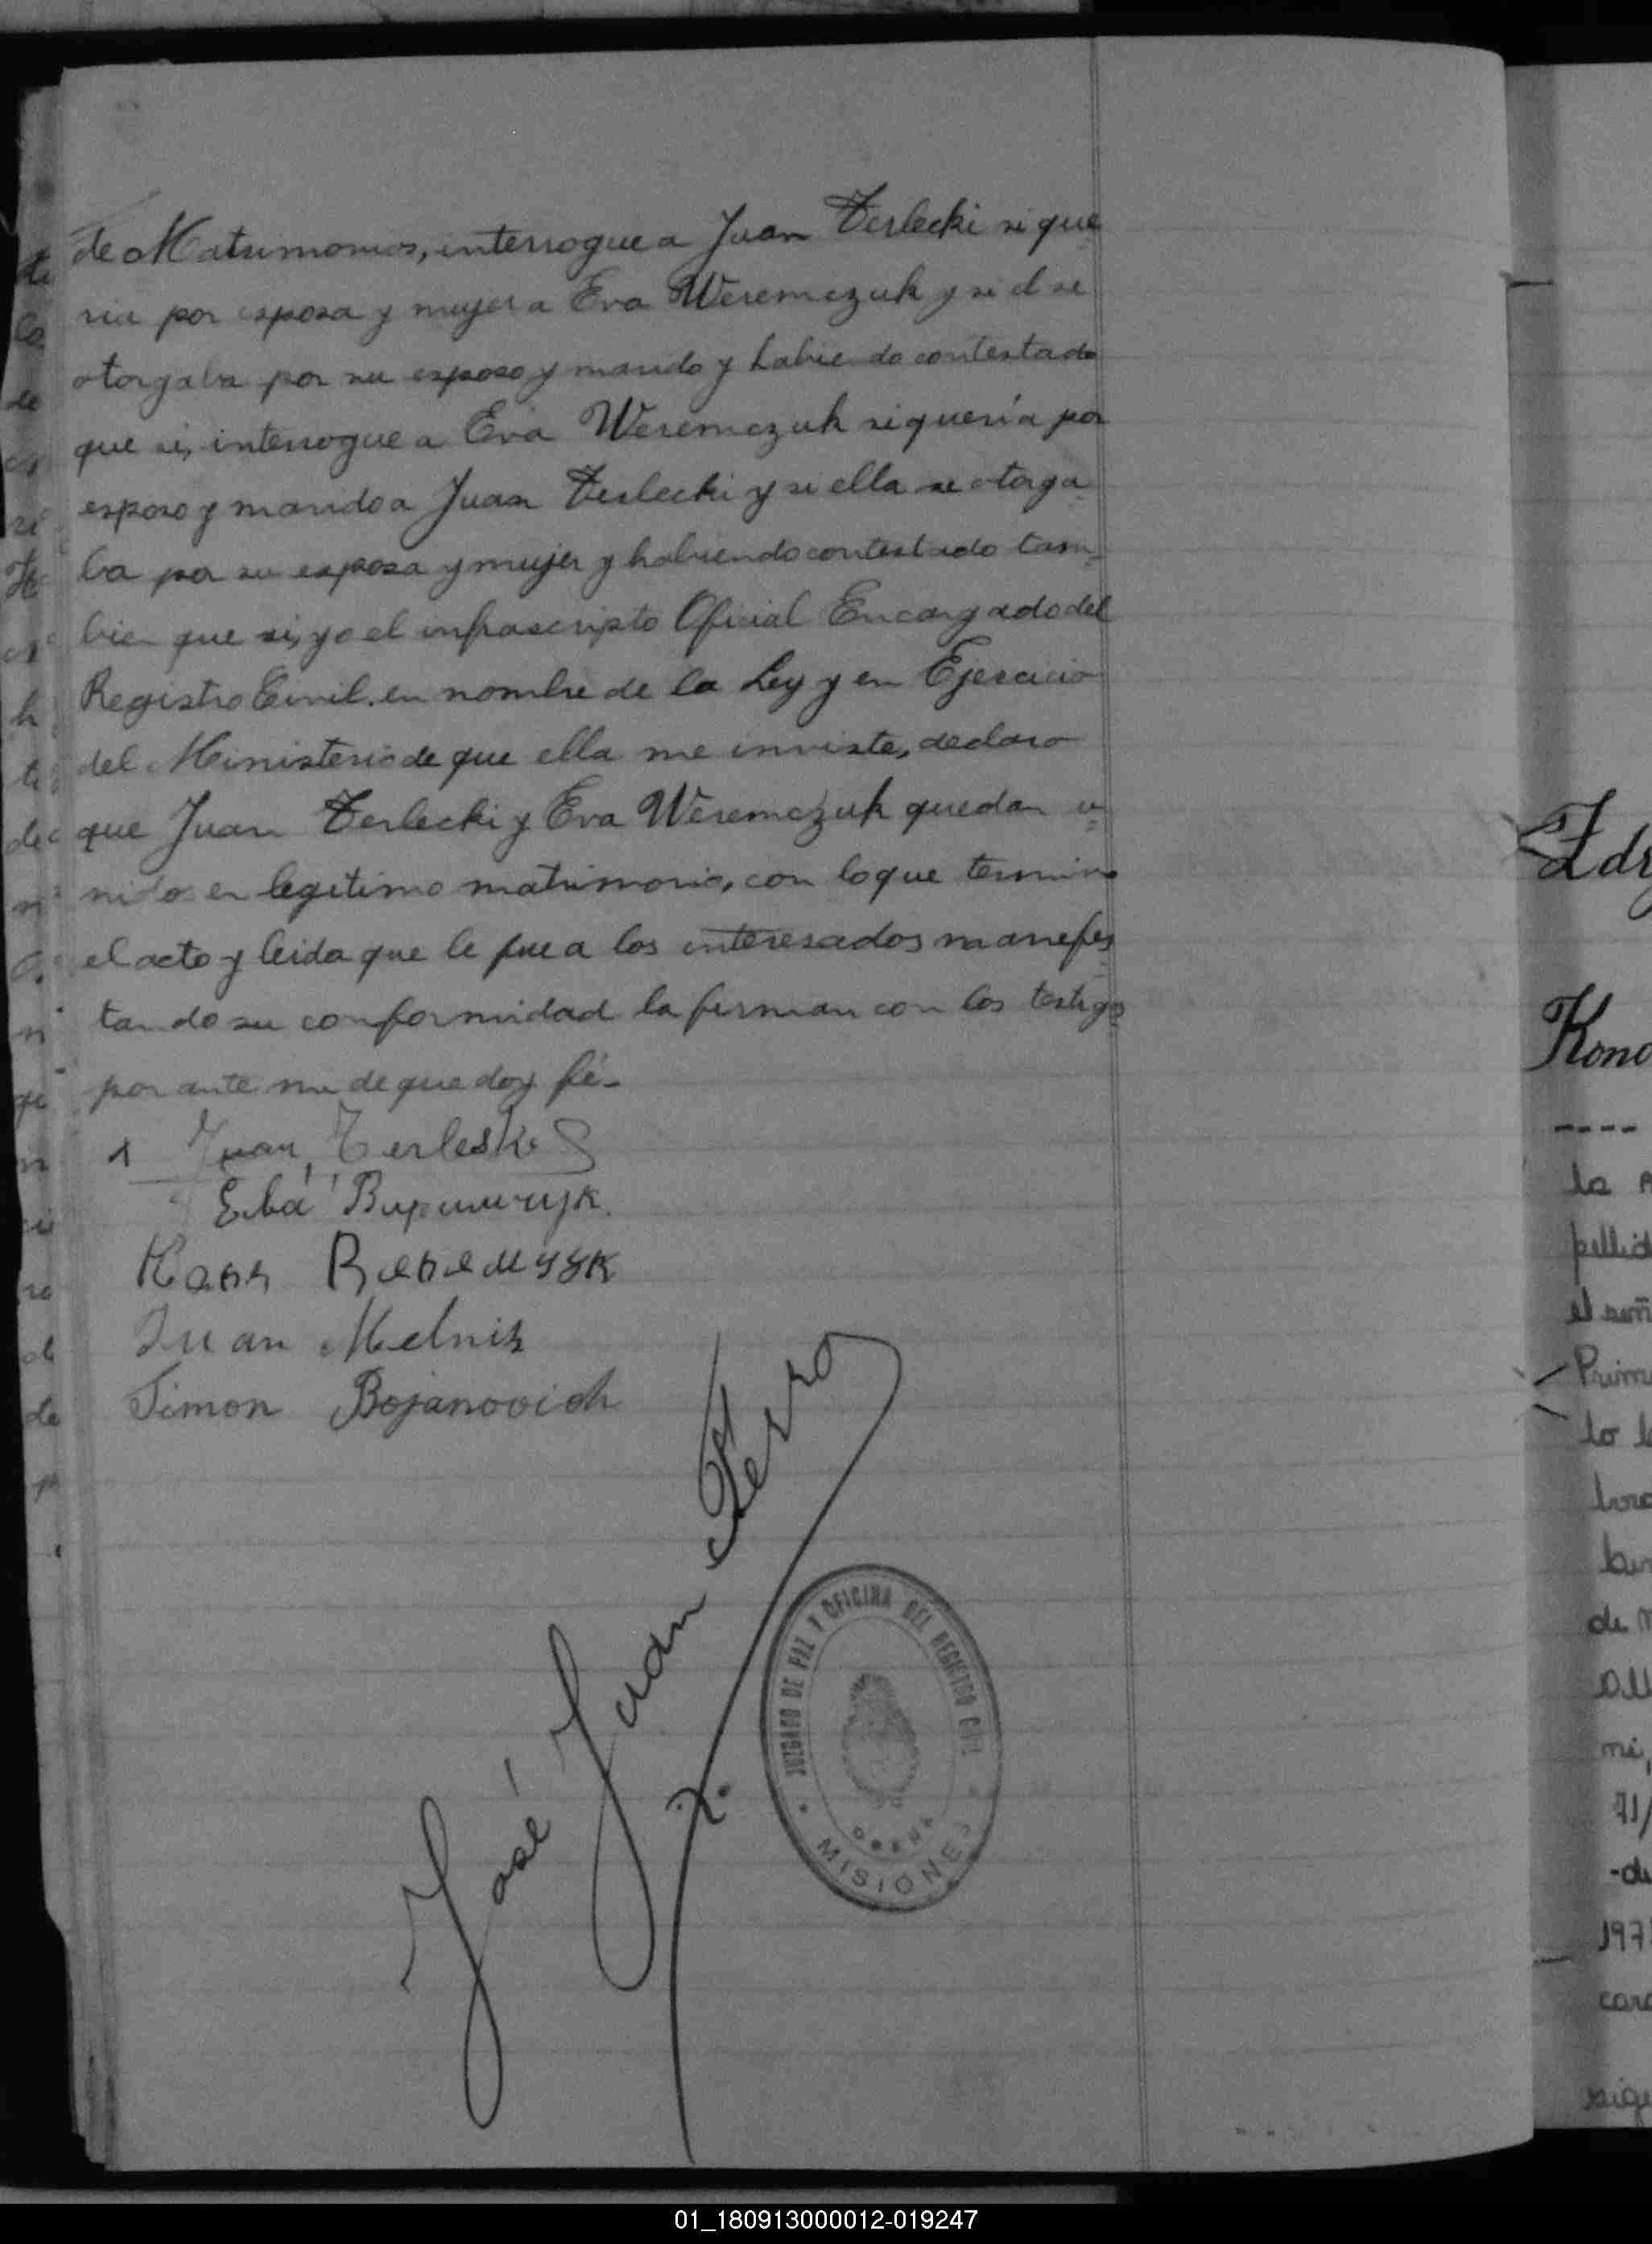 de Matrimonios, interrogue a Juan Terlecki si que
ria por esposa y mujer a Eva Weremczuk y si el se
otorgaba por su esposo y marido y habiendo contestado
que si, interrogue a Eva Weremczuk si quería por
esposo y marido a Juan Terlecki y si ella se otorga
ba por su esposa y mujer y habiendo contestado tam=
bien que si, yo el infrascripto Oficial Encargado del
Registro Civil. en nombre de la Ley y en Ejercicio
del Ministerio de que ella me inviste, declaro
que Juan Terlecki y Eva Weremczuk quedan u=
nidos en legitimo matrimonio, con lo que termino
el acto y leida que le fue a los interesados manifes
tando su conformidad la firman con los testigos
por ante mi de que doy fé-
1 Juan Terleski
Eba
Juan Melnik
Simon Bojanovich
José Juan Ferro
JUZGADO DE PAZ Y OFICINA DEL REGISTRO CIVIL
OBERA
MISIONES
Kono
----
la
pellid
el señ
Prim
lo l
de M
mi,
71/
-de
197
cara
01_180913000012-019247